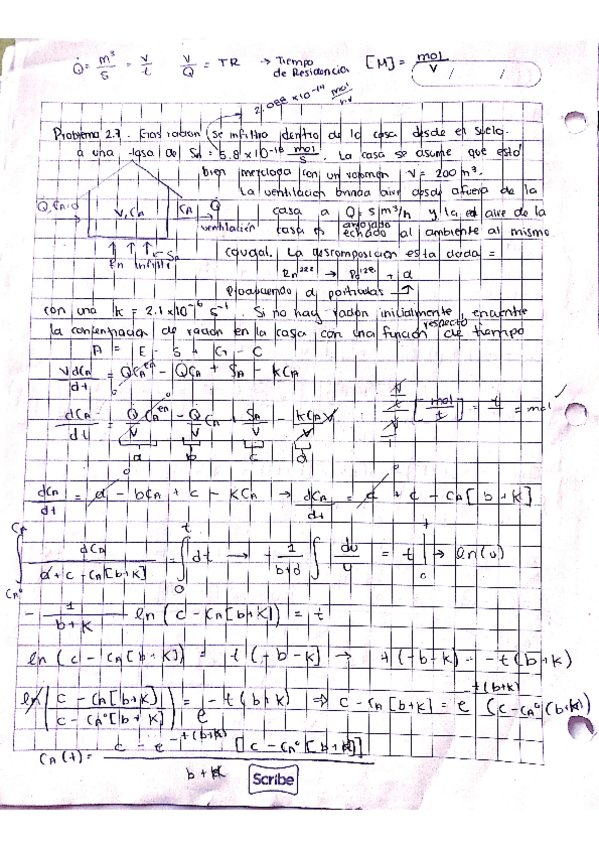 Q̇ = m³/s = V/t    V/Q̇ = TR → Tiempo de Residencia    [M] = mol/V
2.088 × 10⁻¹⁴ mol/hV
Problema 2.7. Gas radon (se infiltra dentro de la casa desde el suelo
a una tasa de Sa = 5.8 × 10⁻¹⁸ mol/s. La casa se asume que esta
bien mezclada con un volumen V = 200 m³.
La ventilacion brinda aire desde afuera de la
casa a Q: 5 m³/h y la el aire de la
casa es arrojado echado al ambiente al mismo
caudal. La descomposicion esta dada =
Q, CA,0
V, CA
CA Q
ventilación
Rn infiltr
SA
Rn²²² → Po²²² + α
produciendo α particulas
con una K = 2.1 × 10⁻⁶ s⁻¹. Si no hay radón inicialmente, encuentre
la concentracion de radon en la casa con una función respecto de tiempo
A = E - S + G - C
V dCA/dt = Q CAen - Q CA + SA - K CA
dCA/dt = Q CAen/V - Q/V CA SA/V - K CA V/V
V/t [mol/t] = t/1 = mol
a b c d
dCA/dt = a - bCA + c - KCA → dCA/dt = a + c - CA[b+K]
∫ dCA / a + c - CA[b+K] = ∫ dt → - 1/b+d ∫ du/u = t | → ln(u)
- 1/b+K ln(c - CA[b+K]) = t
ln(c - CA[b+K]) = t(-b-K) → t(-b-K) = -t(b+K)
ln(c - CA[b+K] / c - CA⁰[b+K]) = -t(b+K) e ⇒ c - CA[b+K] = e^-t(b+K) (c - CA⁰(b+K))
CA(t) = c - e^-t(b+K) [c - CA⁰[b+K]] / b+K
Scribe